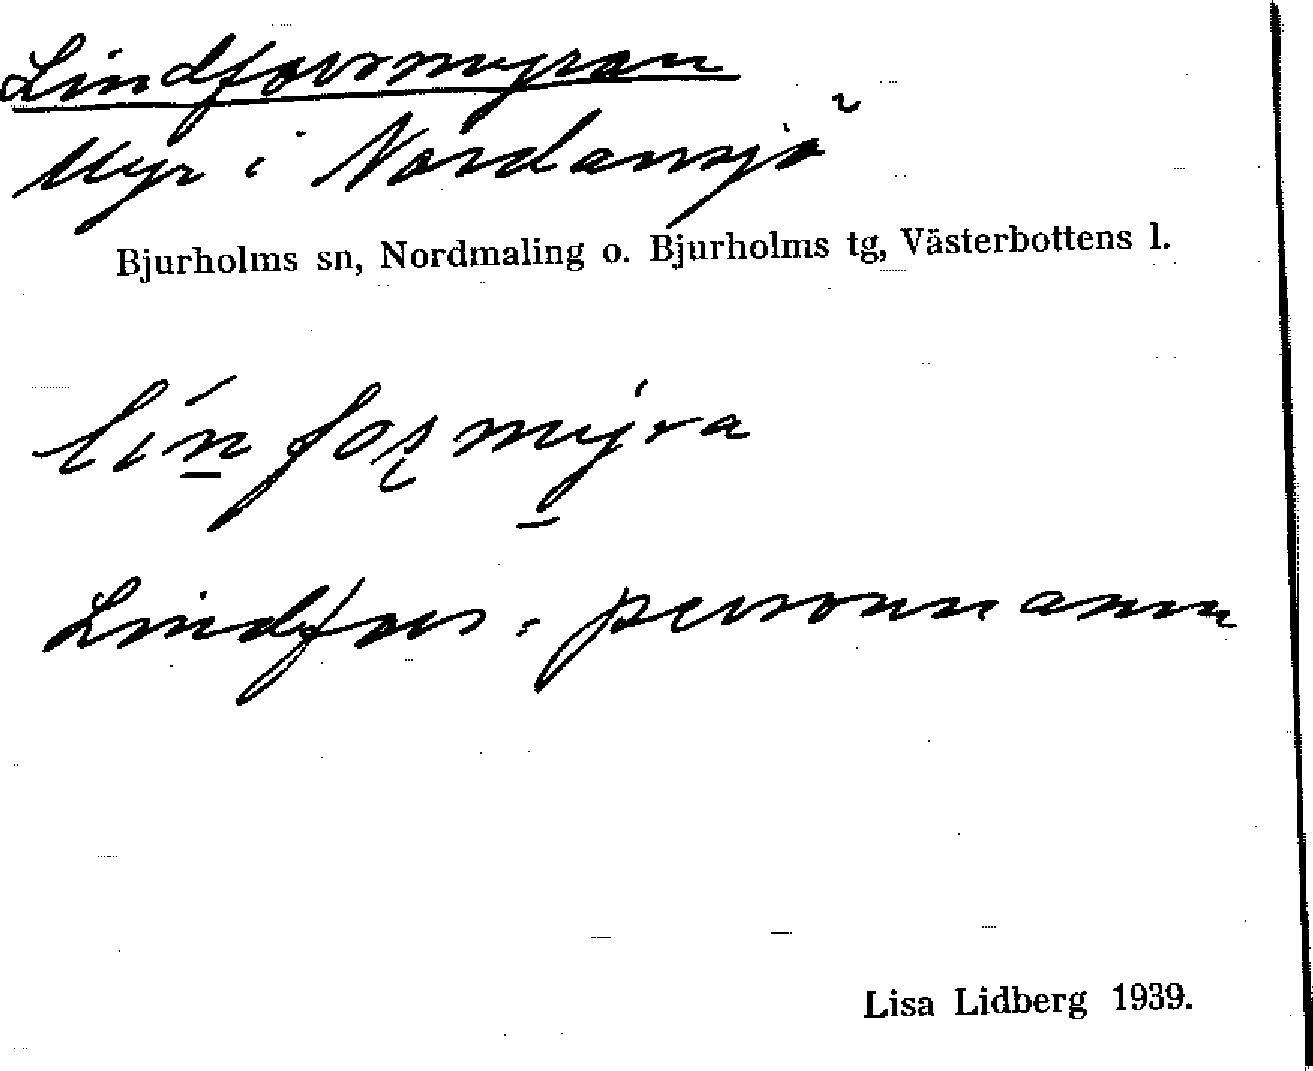 Lindforsmyran
Myr i Nordansjö
Bjurholms sn, Nordmaling o. Bjurholms tg, Västerbottens l.
Lindfors = personnamn
Lisa Lidberg 1939.